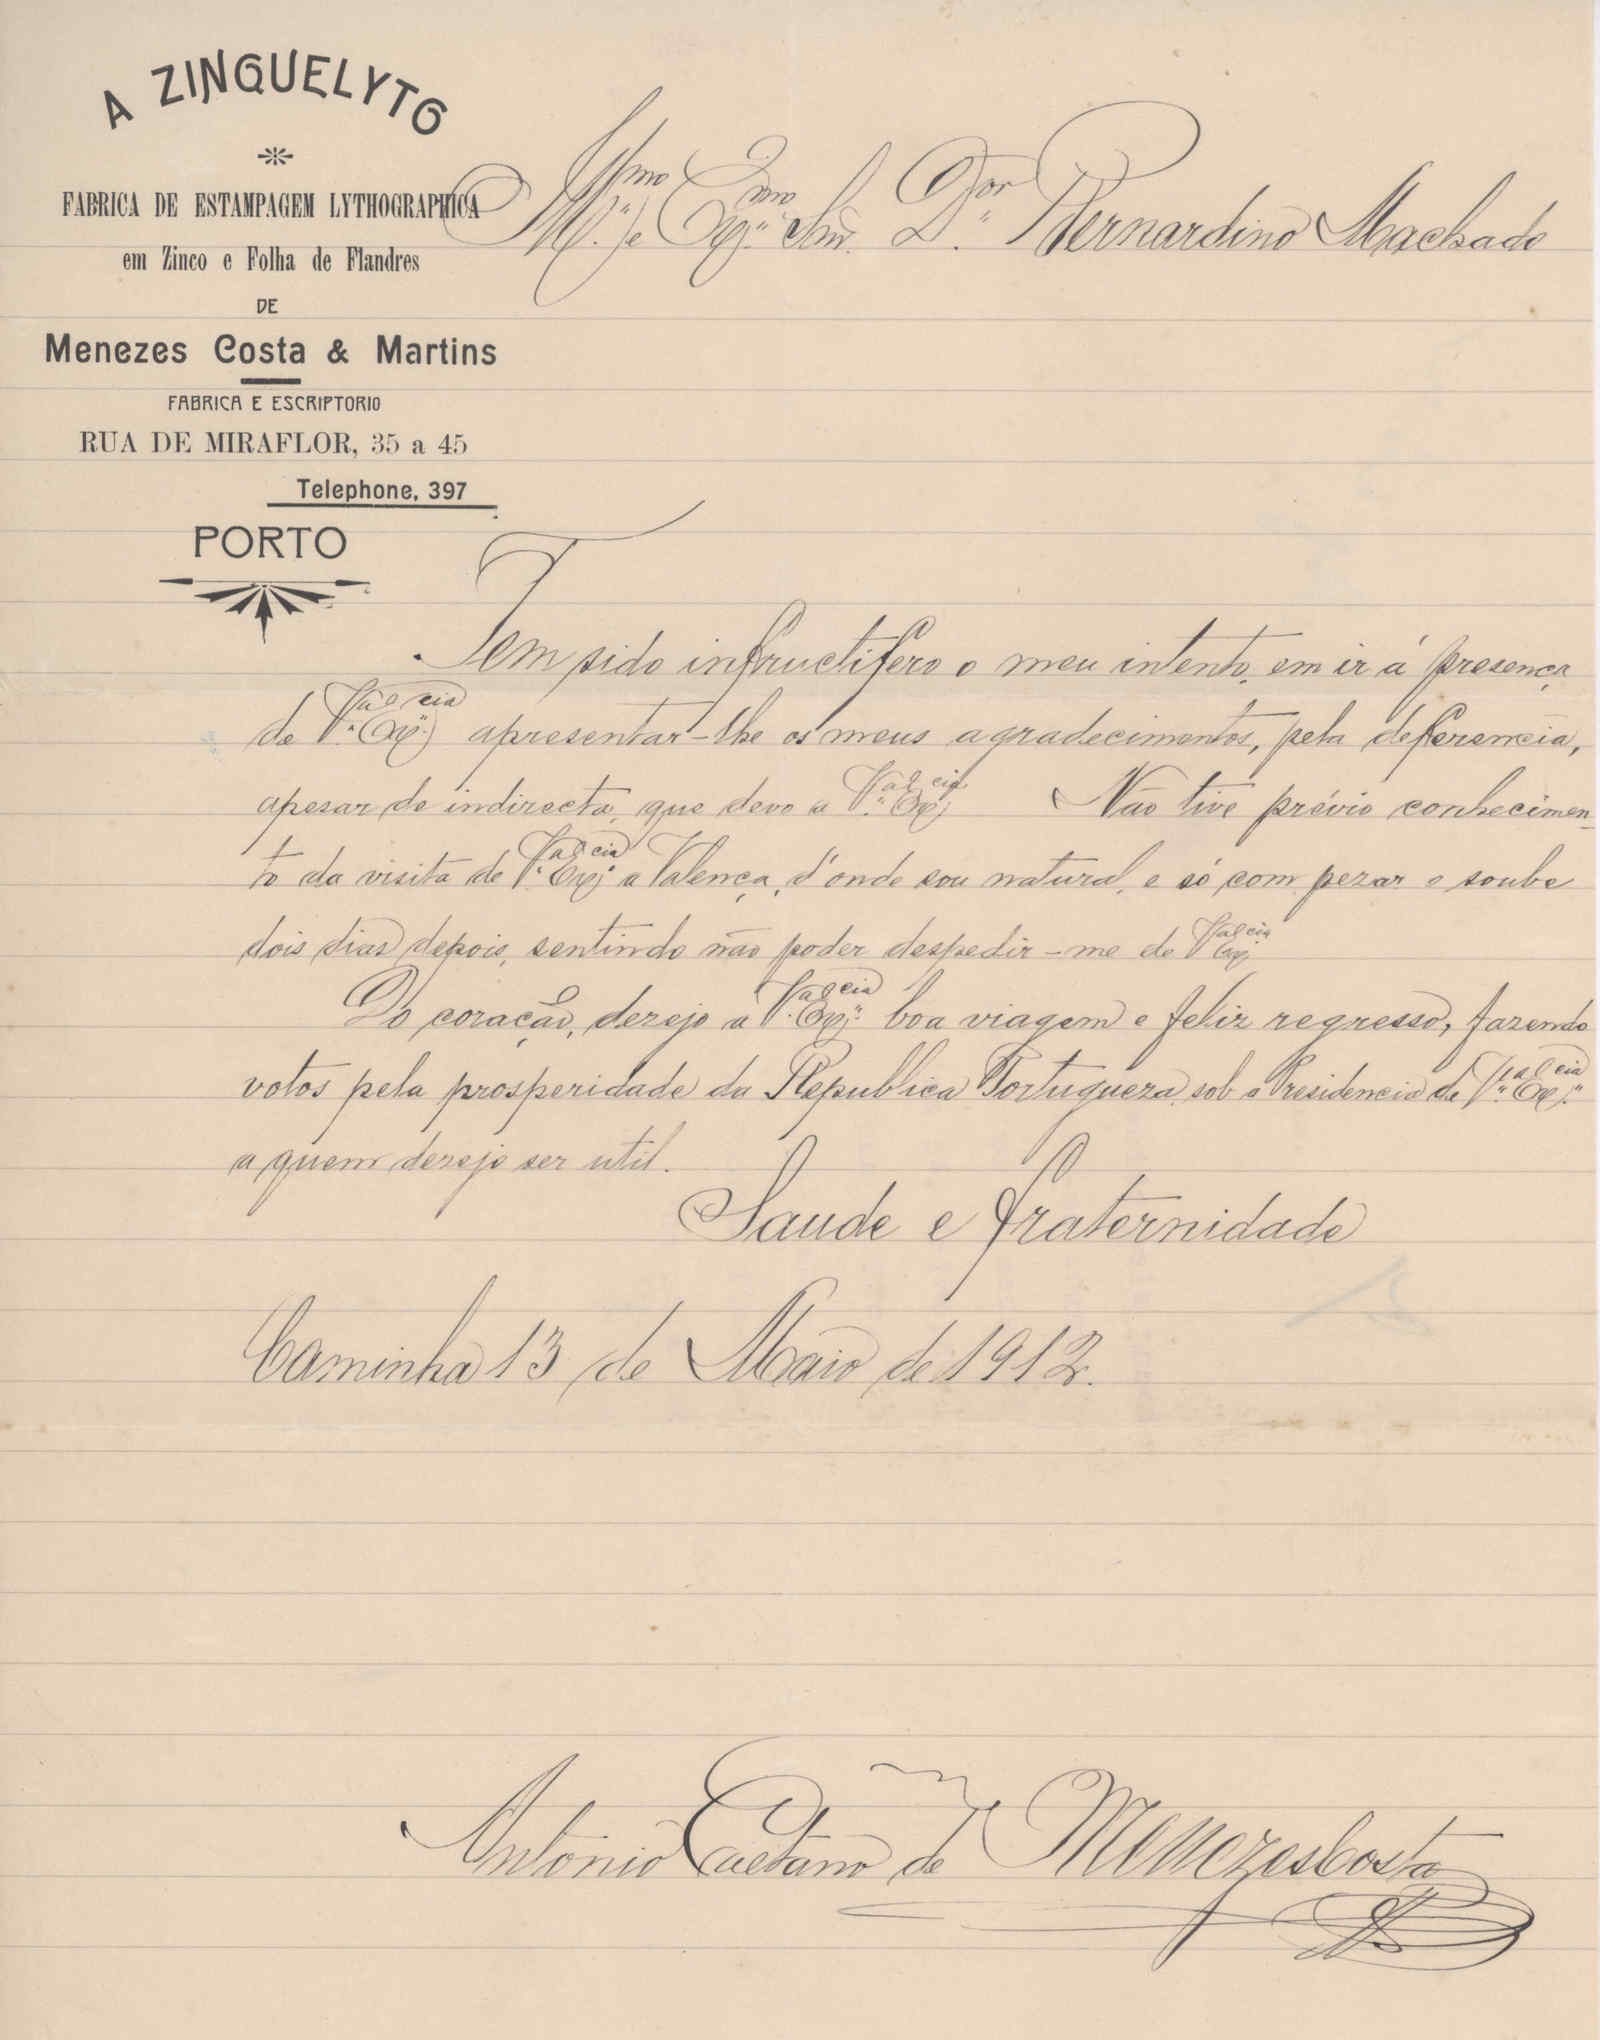 A ZINGUELYTO
FABRICA DE ESTAMPAGEM LYTHOGRAPHICA
em Zinco e Folha de Flandres
DE
Menezes Costa & Martins
FABRICA E ESCRIPTORIO
RUA DE MIRAFLOR, 35 a 45
Telephone, 397
PORTO
Ill.mo e Exmo Snr. D.or Bernardino Machado
Tem sido infructifero o meu intento, em ir á presença
de V.a Ex.cia apresentar-lhe os meus agradecimentos, pela deferencia,
apesar de indirecta, que devo a V.a Ex.cia Não tive prévio conhecimen-
to da visita de V.a Ex.cia a Valença, d'onde sou natural, e só com pezar o soube
dois dias depois, sentindo não poder despedir-me de V.a Ex.cia
Do coração, dezejo a V.a Ex.cia boa viagem e feliz regresso, fazendo
votos pela prosperidade da Republica Portugueza sob a Presidencia de V.a Ex.cia
a quem dezejo ser util.
Saude e fraternidade
Caminha 13 de Maio de 1912.
Antonio Caetano de Menezes Costa